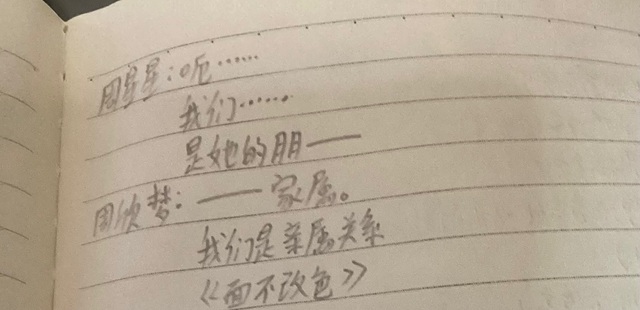 周星星:呃……
我们……
是她的朋——
周欣梦:——家属。
我们是亲属关系
《面不改色》